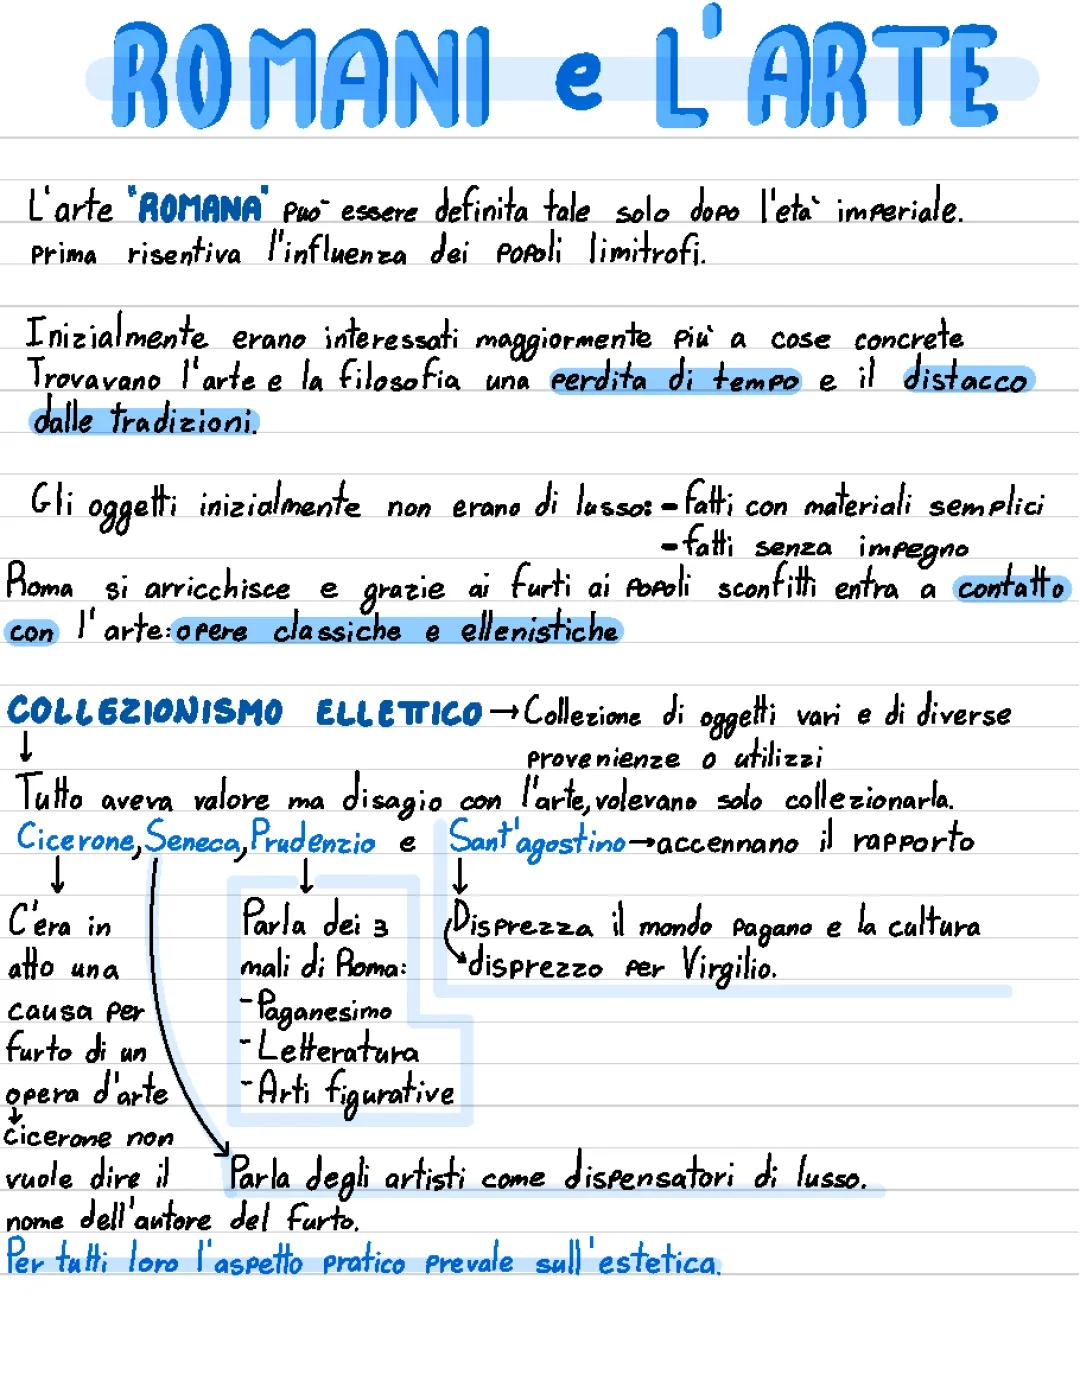 ROMANI e L'ARTE
L'arte "ROMANA" può essere definita tale solo dopo l'età imperiale.
Prima risentiva l'influenza dei popoli limitrofi.
Inizialmente erano interessati maggiormente più a cose concrete
Trovavano l'arte e la filosofia una perdita di tempo e il distacco
dalle tradizioni.
Gli oggetti inizialmente non erano di lusso: - fatti con materiali semplici
- fatti senza impegno
Roma si arricchisce e grazie ai furti ai popoli sconfitti entra a contatto
con l'arte: opere classiche e ellenistiche
COLLEZIONISMO ELLETTICO → Collezione di oggetti vari e di diverse
↓ provenienze o utilizzi
Tutto aveva valore ma disagio con l'arte, volevano solo collezionarla.
Cicerone, Seneca, Prudenzio e Sant'agostino → accennano il rapporto
C'era in
atto una
causa per
furto di un
opera d'arte
↓
Cicerone non
vuole dire il
nome dell'autore del furto.
Parla dei 3
mali di Roma:
- Paganesimo
- Letteratura
- Arti figurative
Disprezza il mondo pagano e la cultura
disprezzo per Virgilio.
Parla degli artisti come dispensatori di lusso.
Per tutti loro l'aspetto pratico prevale sull'estetica.